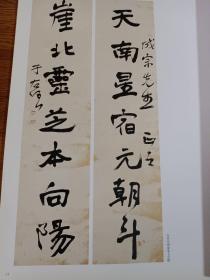 成宗先生 正之
天南星宿元朝斗
崖北靈芝本向陽
于右任